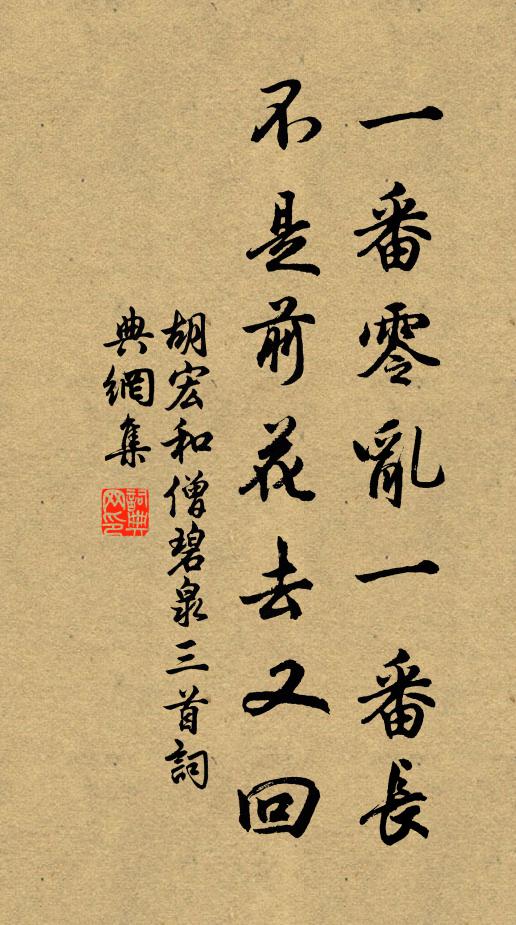 一番零亂一番長
不是前花去又回
胡宏和僧碧泉三首詞
典網集
詞典网印